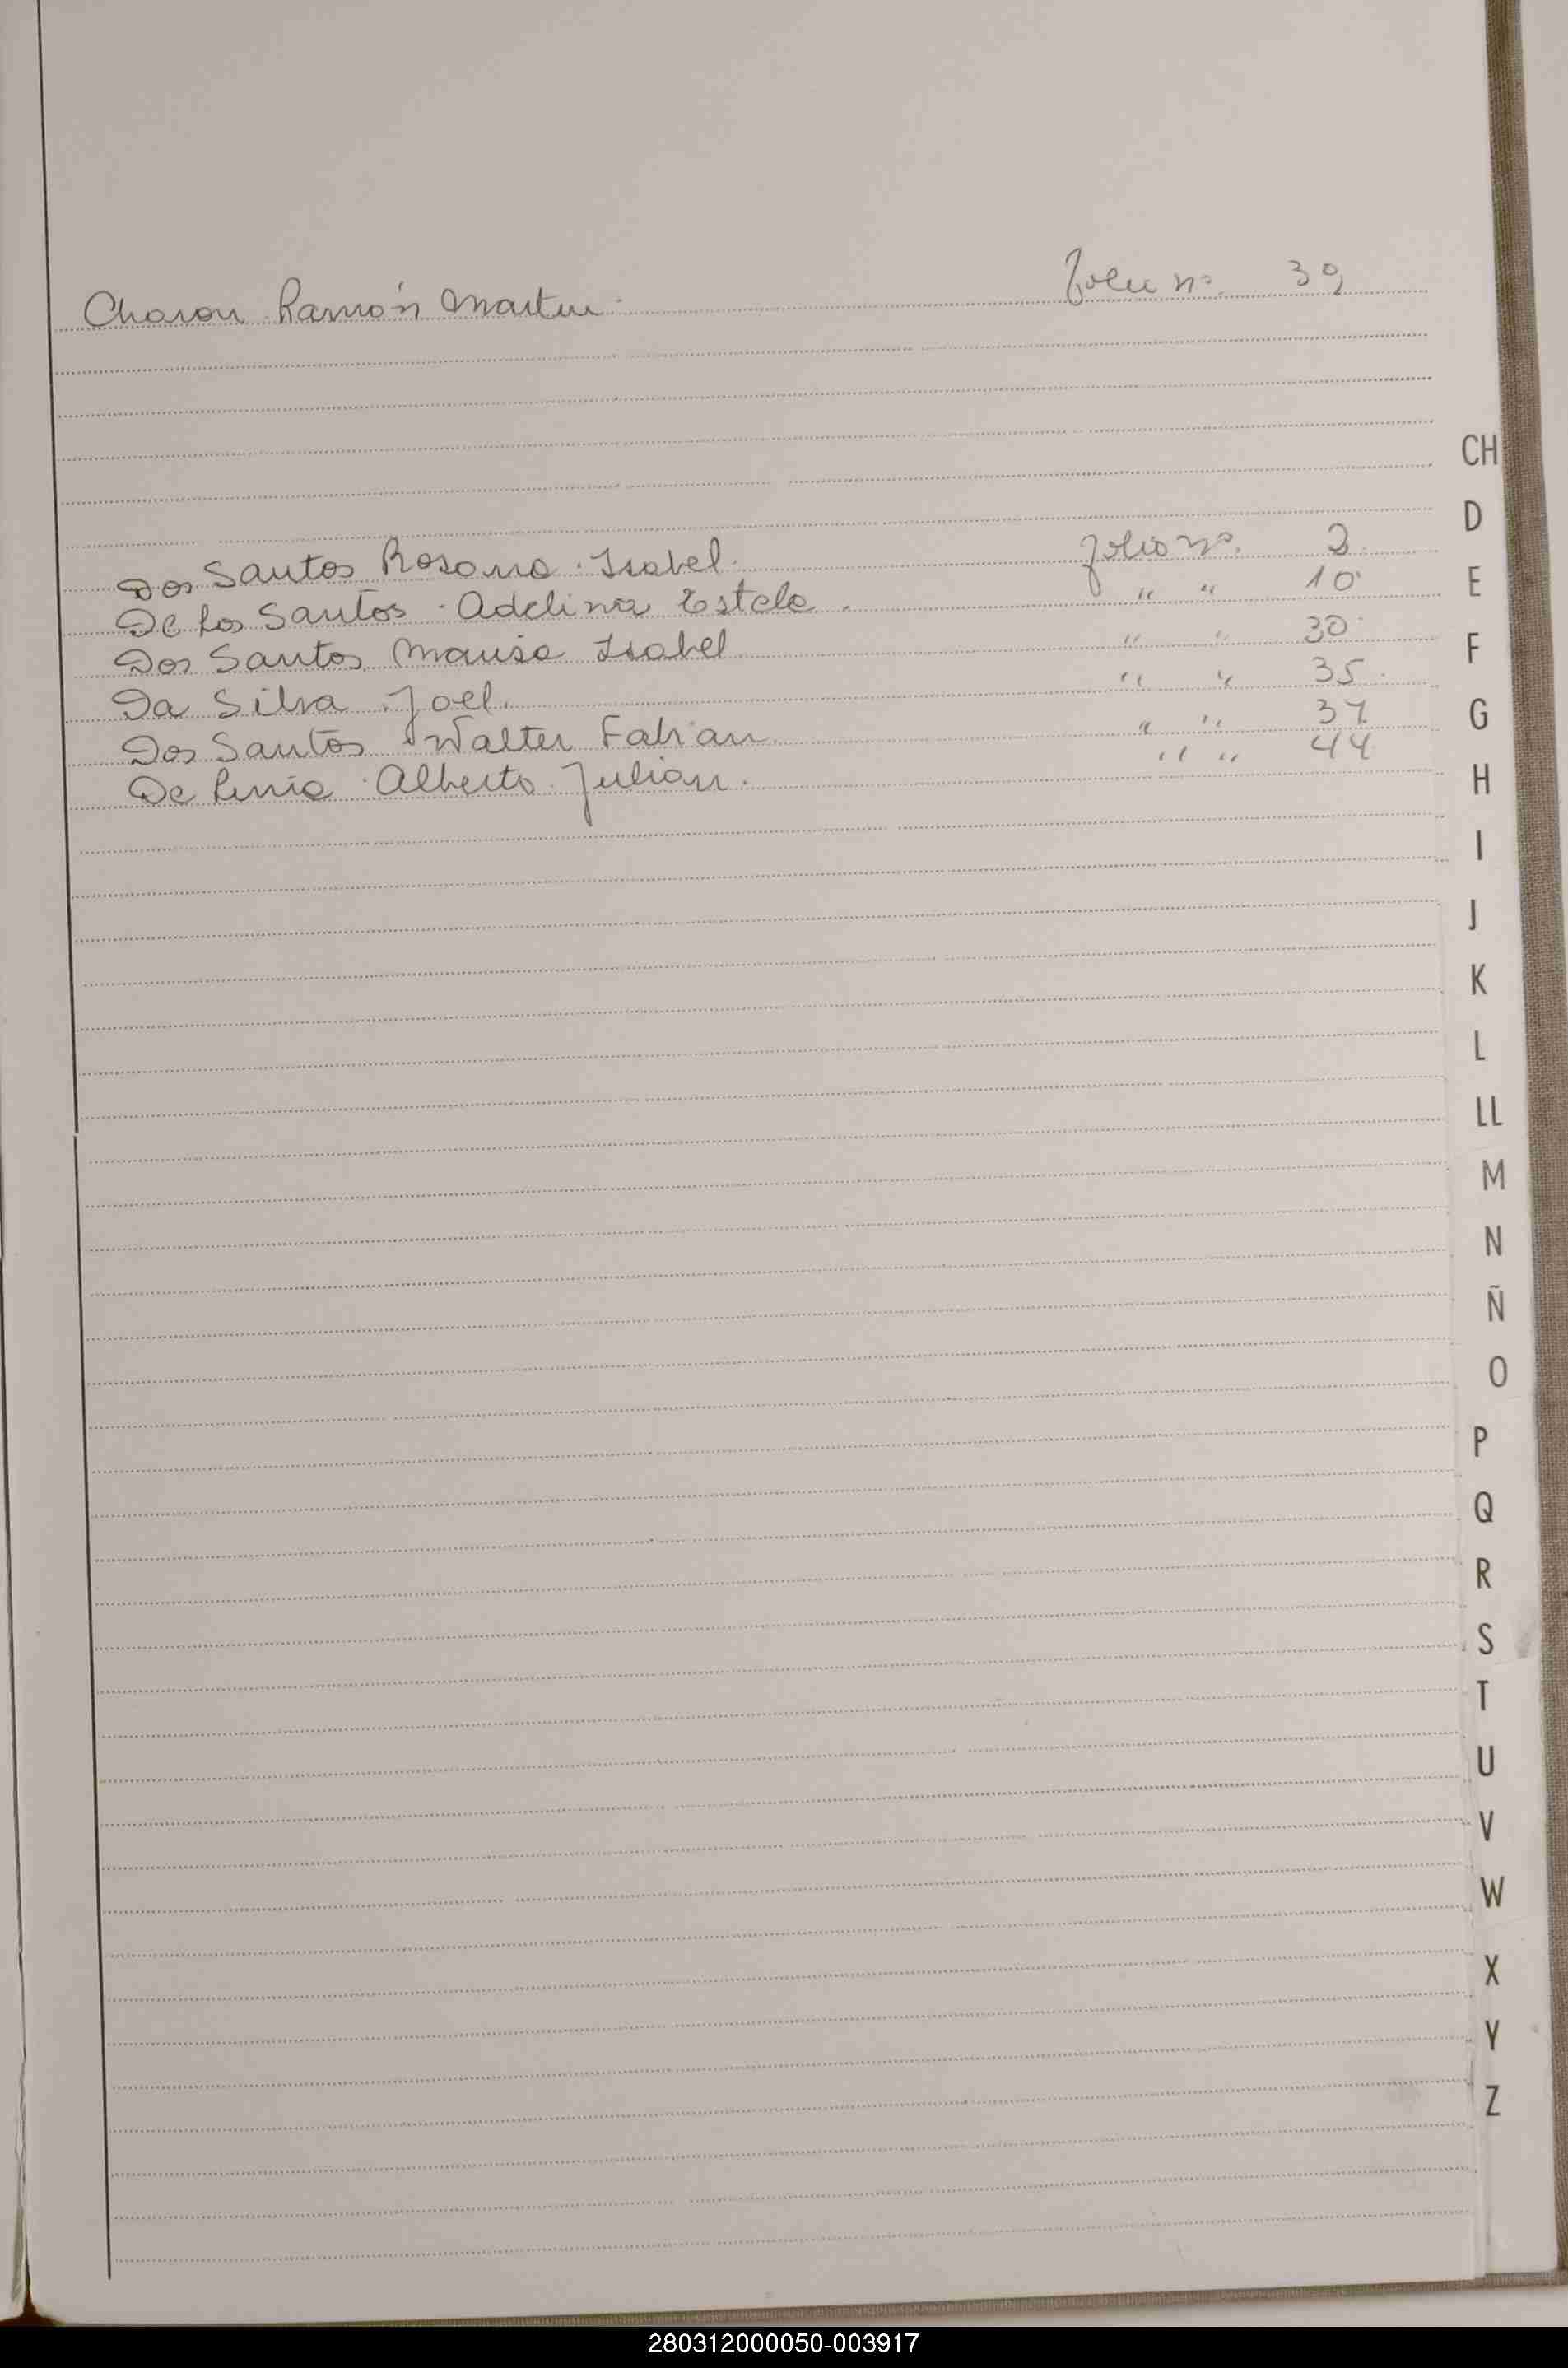 Ramón Martin. Folio nº. 39
Dos Santos Rosana Isabel. folio nº. 2
De Los Santos Adelina Estela. " " 10
Dos Santos Isabel " " 30
Da Silva Joel. " " 35
Dos Santos Walter Fabian. " " 37
De Alberto Julian. " " 44
CH
D
E
F
G
H
I
J
K
L
LL
M
N
Ñ
O
P
Q
R
S
T
U
V
W
X
Y
Z
280312000050-003917